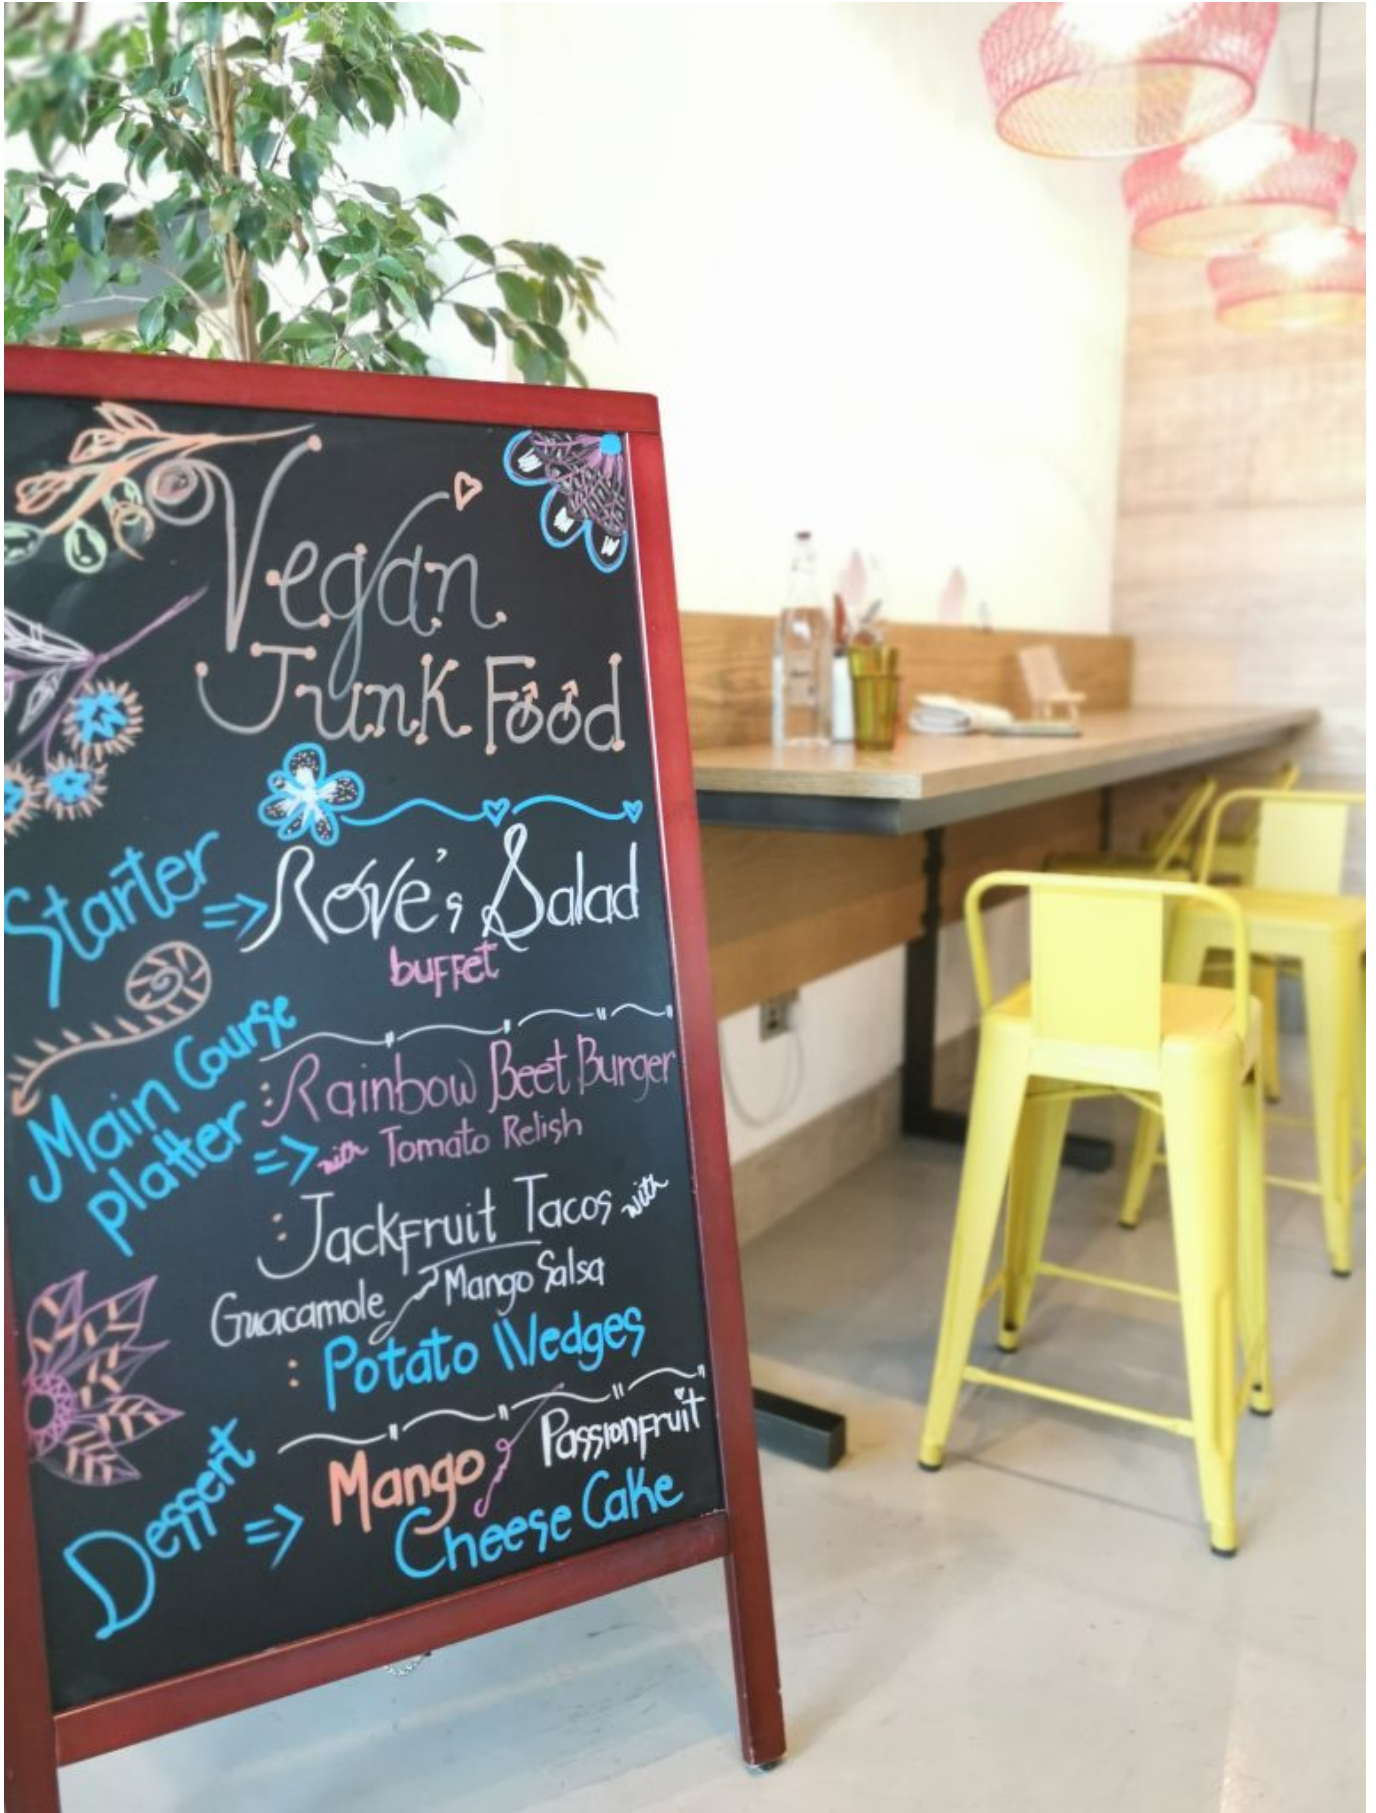 Vegan
Junk Food
Starter => Rove's Salad
buffet
Main Course
platter =>
: Rainbow Beet Burger
with Tomato Relish
: Jackfruit Tacos with
Guacamole & Mango Salsa
: Potato Wedges
Dessert => Mango & Passionfruit
Cheese Cake